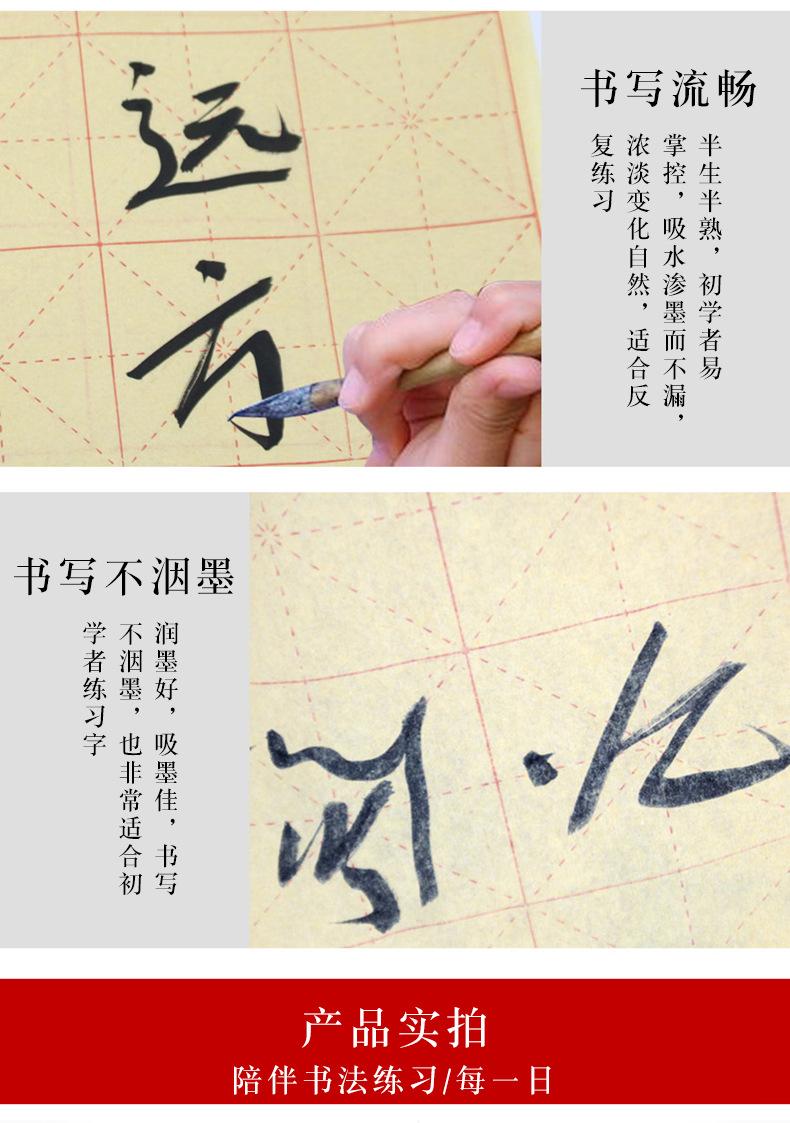 远
方
书写流畅
半生半熟，初学者易
掌控，吸水渗墨而不漏，
浓淡变化自然，适合反
复练习
书写不洇墨
润墨好，吸墨佳，书写
不洇墨，也非常适合初
学者练习字
产品实拍
陪伴书法练习/每一日